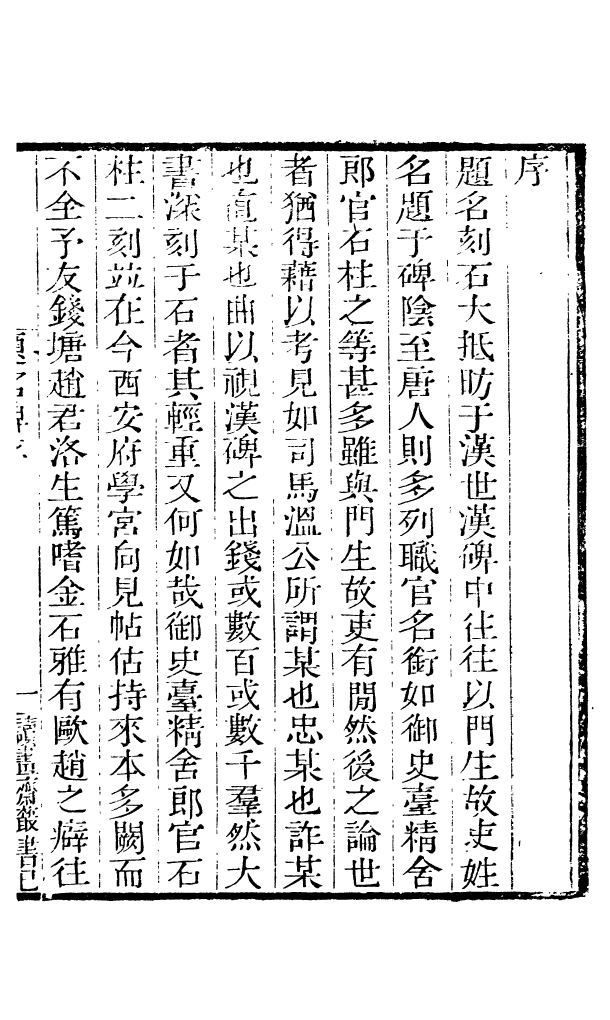 序
題名刻石大抵昉于漢世漢碑中往往以門生故吏姓
名題于碑陰至唐人則多列職官名銜如御史臺精舍
郎官石柱之等甚多雖與門生故吏有閒然後之論世
者猶得藉以考見如司馬溫公所謂某也忠某也詐某
也直某也曲以視漢碑之出錢或數百或數千羣然大
書深刻于石者其輕重又何如哉御史臺精舍郎官石
柱二刻竝在今西安府學宮向見帖估持來本多闕而
不全予友錢塘趙君洛生篤嗜金石雅有歐趙之癖往
題名碑序
一
讀畫齋叢書己